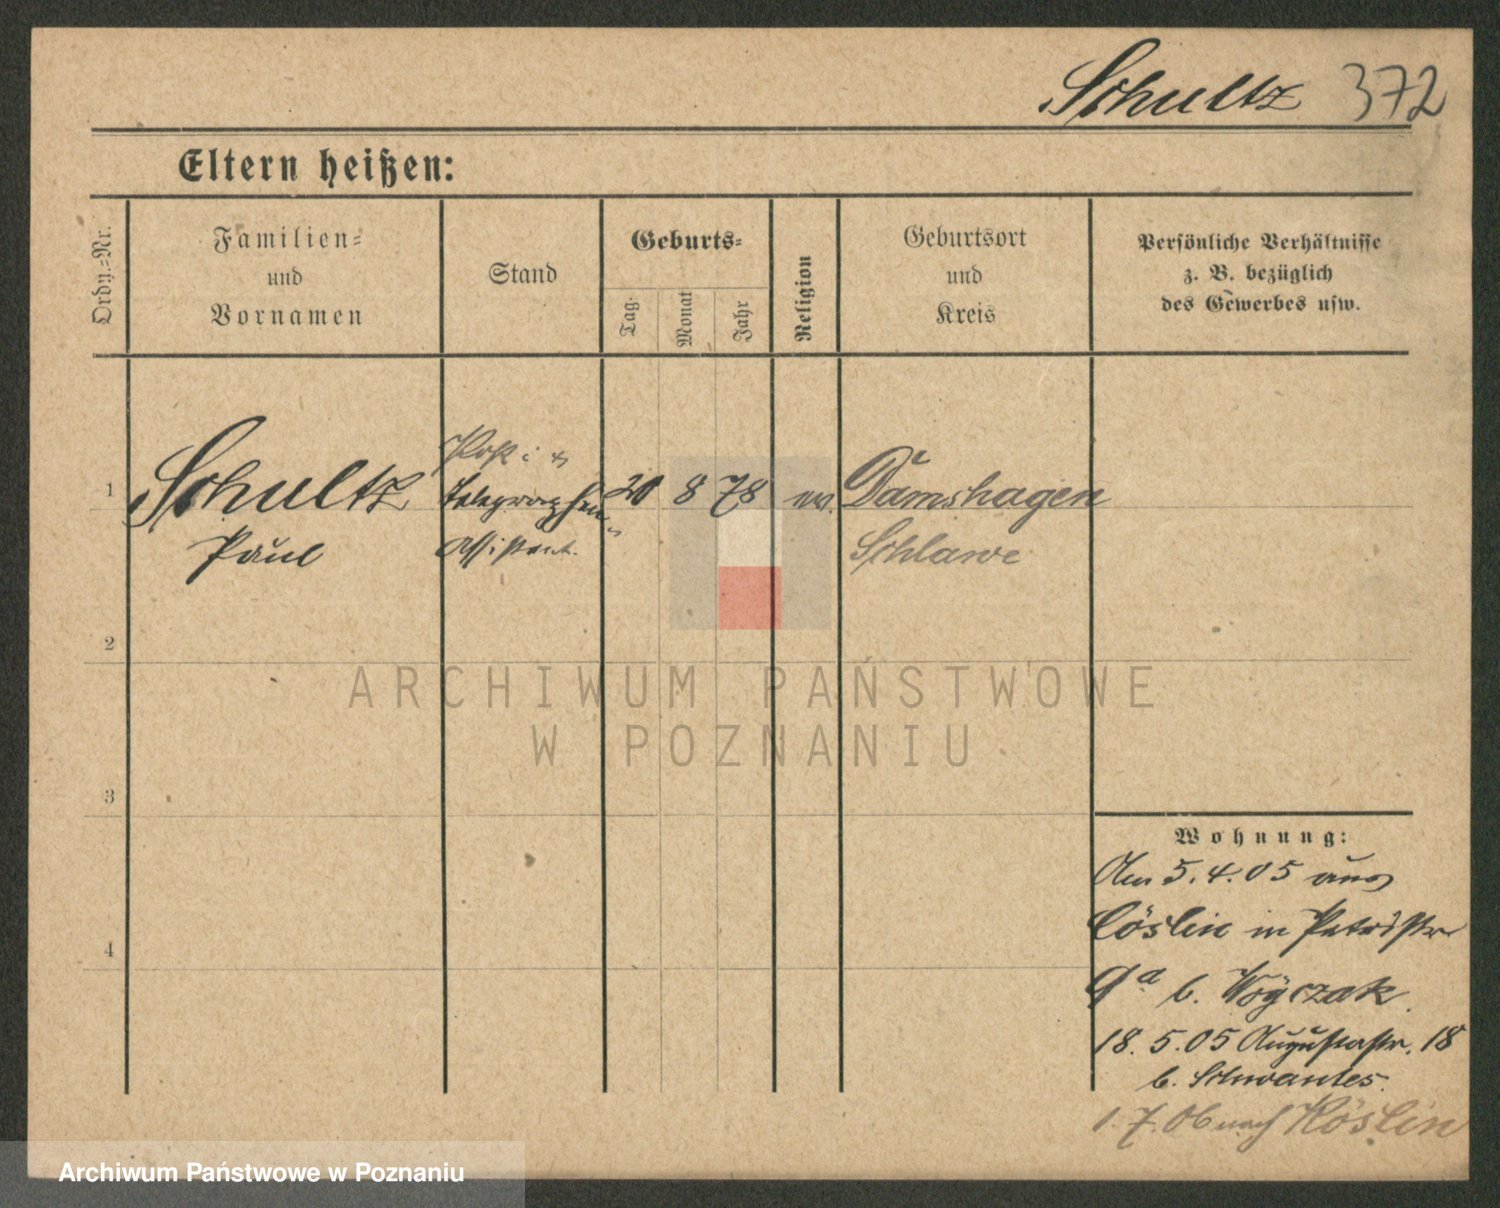 Schultz 372
Eltern heißen:
Ordn.-Nr.
Familien-
und
Vornamen
Stand
Geburts-
Tag.
Monat
Jahr
Religion
Geburtsort
und
Kreis
Persönliche Verhältnisse
z. B. bezüglich
des Gewerbes usw.
1
Schultz
Paul
Post- u
Telegraphen-
Assistent.
20 8 78 ev.
Damshagen
Schlawe
2
3
4
Wohnung:
Am 5.4.05 aus
Cöslin in Petristr
9a b. Woyczak
18.5.05 Augustastr. 18
b. Schwantes.
1.7.06 nach Köslin
ARCHIWUM PAŃSTWOWE
W POZNANIU
Archiwum Państwowe w Poznaniu